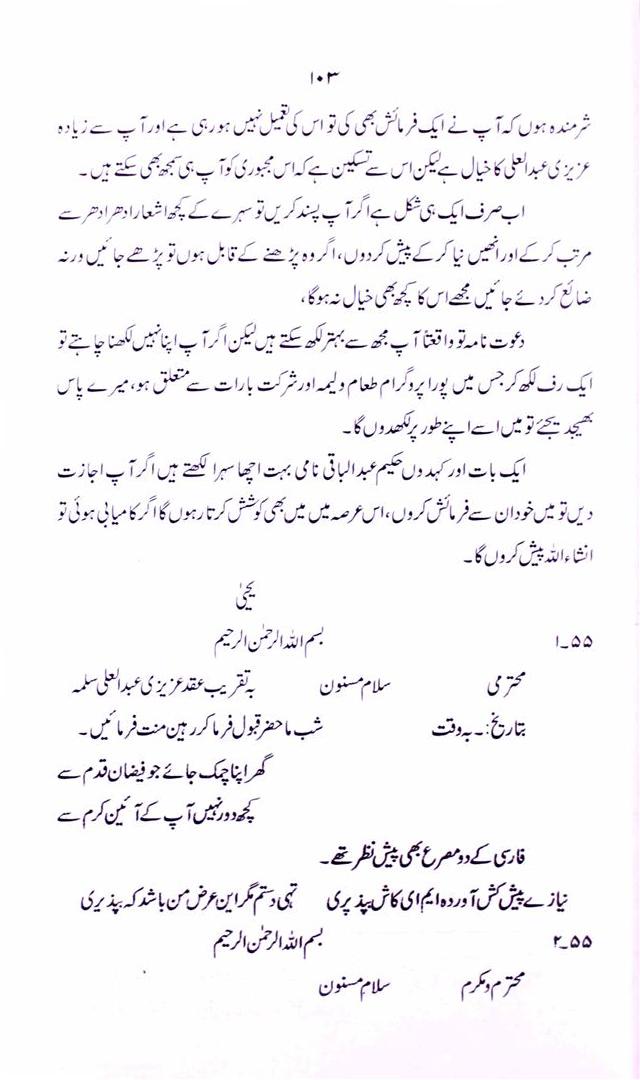 ۱۰۳
شرمندہ ہوں کہ آپ نے ایک فرمائش بھی کی تو اس کی تعمیل نہیں ہو رہی ہے اور آپ سے زیادہ
عزیزی عبدالعلی کا خیال ہے لیکن اس سے تسکین ہے کہ اس مجبوری کو آپ ہی سمجھ بھی سکتے ہیں۔
اب صرف ایک ہی شکل ہے اگر آپ پسند کریں تو سہرے کے کچھ اشعار ادھر ادھر سے
مرتب کر کے اور انھیں نیا کر کے پیش کر دوں، اگر وہ پڑھنے کے قابل ہوں تو پڑھے جائیں ورنہ
ضائع کر دئے جائیں مجھے اس کا کچھ بھی خیال نہ ہوگا،
دعوت نامہ تو واقعتاً آپ مجھ سے بہتر لکھ سکتے ہیں لیکن اگر آپ اپنا نہیں لکھنا چاہتے تو
ایک رف لکھ کر جس میں پورا پروگرام طعام ولیمہ اور شرکت بارات سے متعلق ہو، میرے پاس
بھیجدیجئے تو میں اسے اپنے طور پر لکھدوں گا۔
ایک بات اور کہدوں حکیم عبدالباقی نامی بہت اچھا سہرا لکھتے ہیں اگر آپ اجازت
دیں تو میں خود ان سے فرمائش کروں، اس عرصہ میں میں بھی کوشش کرتا رہوں گا اگر کامیابی ہوئی تو
انشاءاللہ پیش کروں گا۔
یحییٰ
۵۵۔۱ بسم اللہ الرحمٰن الرحیم
محترمی سلام مسنون بہ تقریب عقد عزیزی عبدالعلی سلمہ
بتاریخ:۔ بہ وقت شب ماحضر قبول فرما کر رہین منت فرمائیں۔
گھر اپنا چمک جائے جو فیضان قدم سے
کچھ دور نہیں آپ کے آئین کرم سے
فارسی کے دو مصرع بھی پیش نظر تھے۔
نیازے پیش کش آوردہ ایم ای کاش بپذیری تہی دستم مگر این عرض من باشد کہ بپذیری
۵۵۔۲ بسم اللہ الرحمٰن الرحیم
محترم و مکرم سلامِ مسنون